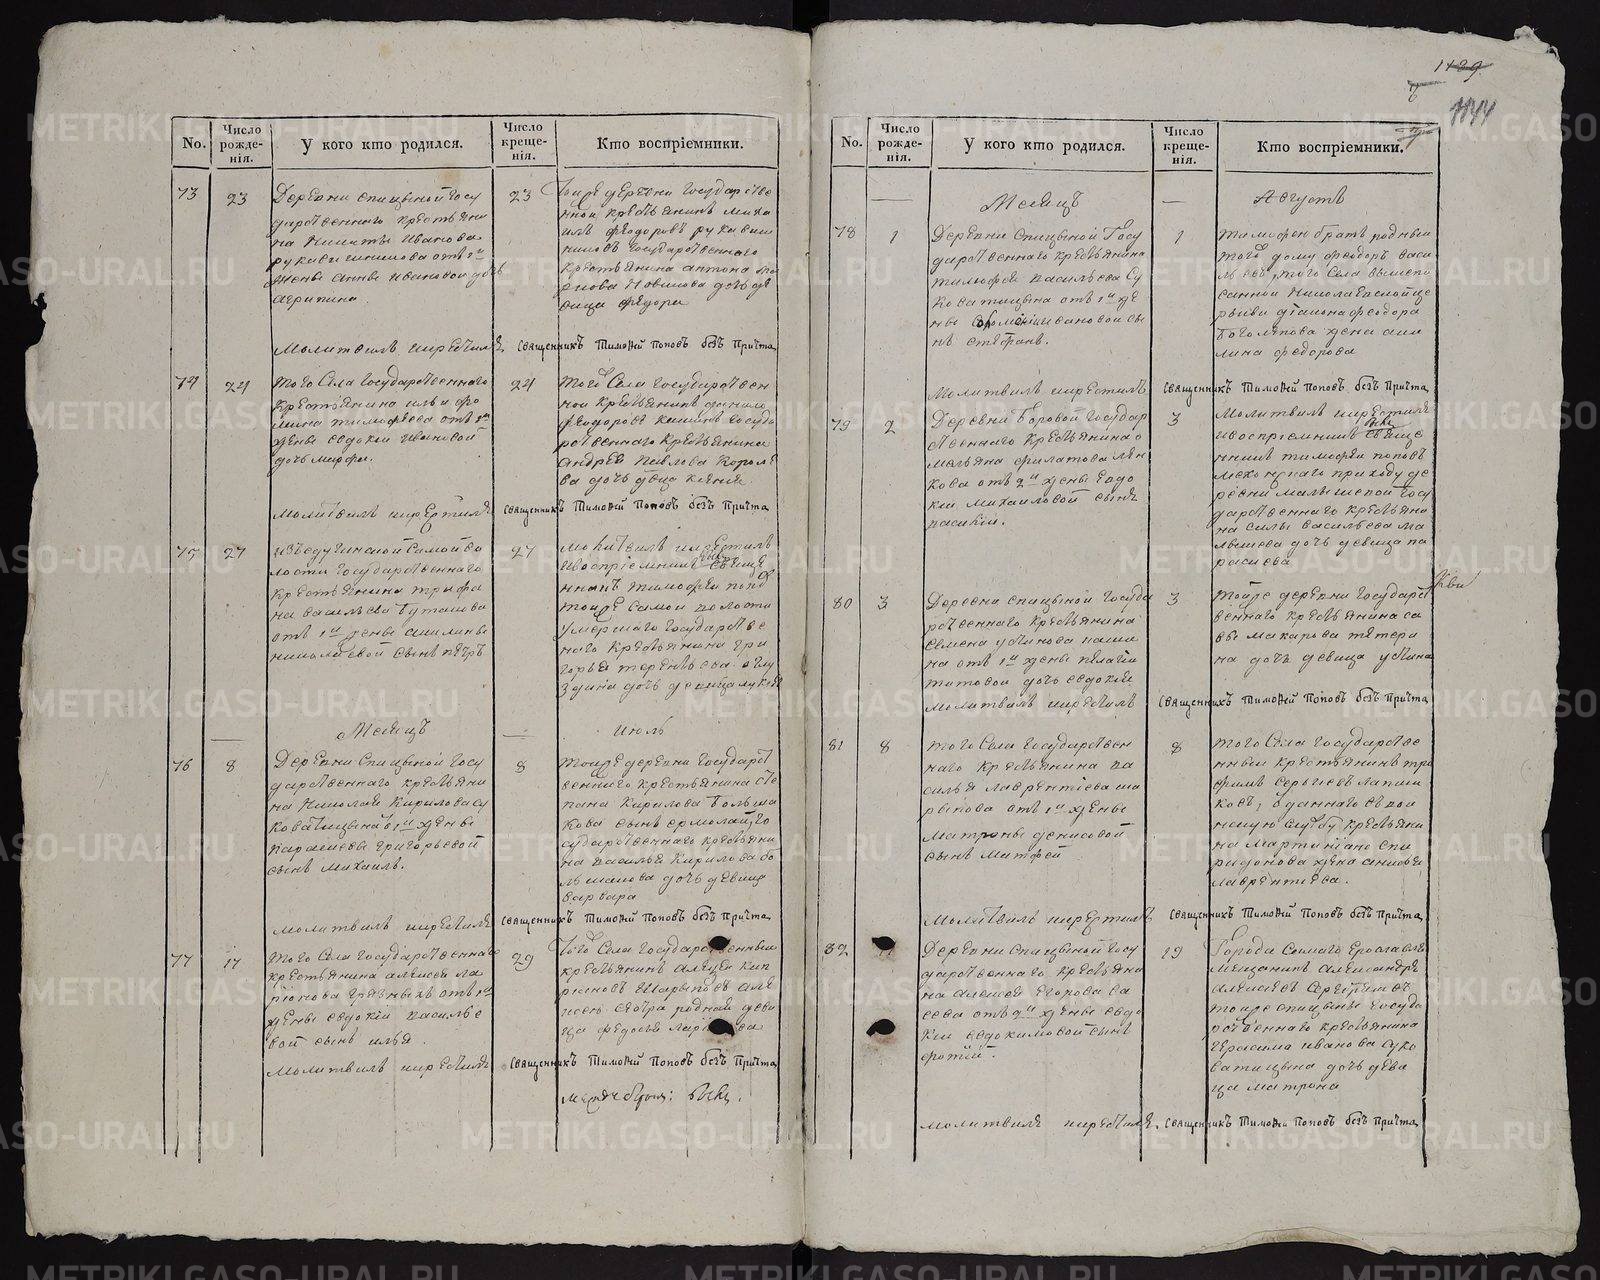 1489
1144
No.
Число рожде-
нія.
У кого кто родился.
Число креще-
нія.
Кто воспріемники.
73
23
Деревни Спицыной Госу
дарственнаго крестьяни
на Никиты Иванова
Рукавишникова отъ 1й
жены Анны Ивановой дочь
Агрипина
23
Тоже деревни Государстве
нной крестьянинъ Миха
илъ Феодоровъ Рукавиш
никовъ Государственнаго
крестьянина Антона
Новикова дочь де
вица Федора
Молитвилъ и крестилъ Священникъ Тимоѳей Поповъ безъ Причта
74
24
Того Села Государственнаго
крестьянина Ильи Фо
мина Тимофеева отъ 1й
жены Евдокіи Ивановой
дочь Марфа.
24
Того Села Государствен
ной крестьянинъ Данило
Феодоровъ Государ
рственнаго крестьянина
Андрея Павлова Короле
ва дочь девица Ксенія
Молитвилъ и крестилъ Священникъ Тимоѳей Поповъ безъ Причта
75
27
лости Государственнаго
крестьянина Трифо
на Васильева Бутакова
отъ 1й жены Акилины
Николаевой сынъ Петръ
27
Молитвилъ и крестилъ
и воспріемникъ былъ Свяще
нникъ Тимофей Попов
Тоже самой волости
умершаго Государстве
ннаго крестьянина Гри
горья Терентьева
дочь девица Лукія
Месяцъ
Июль
76
8
Деревни Спицыной Госу
дарственнаго крестьяни
на Николая Кирилова Су
коватицына отъ 1й жены
Парасковьи Григорьевой
сынъ Михаилъ.
8
Тоже деревни Государст
веннаго крестьянина Сте
пана Кирилова Больша
кова сынъ Ермолай, Го
сударственнаго крестьяни
на Василья Кирилова Бо
льшакова дочь девица
Варвара
Молитвилъ и крестилъ Священникъ Тимоѳей Поповъ безъ Причта
77
17
Того Села Государственнаго
крестьянина Алексея Ла
ріонова Грязныхъ отъ 1й
жены Евдокіи Василье
вой сынъ Илья.
29
Того Села Государственный
крестьянинъ Алексей Кип
ріяновъ Шарыповъ Але
ксея сестра родная деви
ца Федосья Ларіонова
Молитвилъ и крестилъ Священникъ Тимоѳей Поповъ безъ Причта
No.
Число рожде-
нія.
У кого кто родился.
Число креще-
нія.
Кто воспріемники.
Месяцъ
Августъ
78
1
Деревни Спицыной Госу
дарственнаго крестьянина
Тимофея Васильева Су
коватицына отъ 1й же
ны Ивановой сы
нъ Стефанъ.
1
Тимофея братъ родный
того дому Феодоръ Васи
льевъ, того Села вышепи
санной Николаевской це
ркви діакона Феодора
Боголепова жена Аки
лина Федорова
Молитвилъ и крестилъ Священникъ Тимоѳей Поповъ безъ Причта
79
2
Деревни Боровой Государ
ственнаго крестьянина О
мельяна Филатова Лян
кова отъ 2й жены Евдо
кіи Михаиловой сынъ
Василій.
3
Молитвилъ и крестилъ
и воспріемникъ былъ Свяще
нникъ Тимофей Поповъ
Мехонскаго приходу де
ревни Малышевой Госу
дарственнаго крестьяни
на Силы Васильева Ма
лышева дочь девица Па
расковья
80
3
Деревни Спицыной Госуда
рственнаго крестьянина
Семена Устинова Паши
на отъ 1й жены Пелагіи
Титовой дочь Евдокія
3
Тоже деревни Государст
веннаго крестьянина Са
вы Макарова Тетери
на дочь девица Устина
Молитвилъ и крестилъ Священникъ Тимоѳей Поповъ безъ Причта
81
8
Того Села Государствен
наго крестьянина Ва
силья Лаврентіева Ша
рыпова отъ 1й жены
Матроны Денисовой
сынъ Матфей
8
Того Села Государстве
нный крестьянинъ Тро
фимъ Сергеевъ Лапши
ковъ, отданнаго въ вои
нскую службу крестьяни
на Мартиніана Спи
ридонова жена Анисья
Лаврентіева.
Молитвилъ и крестилъ Священникъ Тимоѳей Поповъ безъ Причта
82
Деревни Спицыной Госу
дарственнаго крестьяни
на Алексея Егорова Са
вева отъ 2й жены Евдо
кіи Евдокимовой сынъ
Фотій.
19
Города Самаго Ерославля
мещанинъ Александръ
Алексеевъ
тоже Спицыны Госуда
рственнаго крестьянина
Герасима Иванова Суко
ватицына дочь деви
ца Матрона
Молитвилъ и крестилъ Священникъ Тимоѳей Поповъ безъ Причта